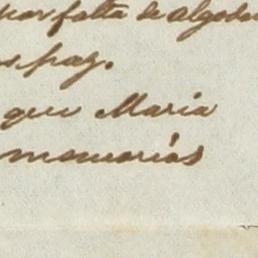 por falta de algodão
paz.
que Maria
memorias